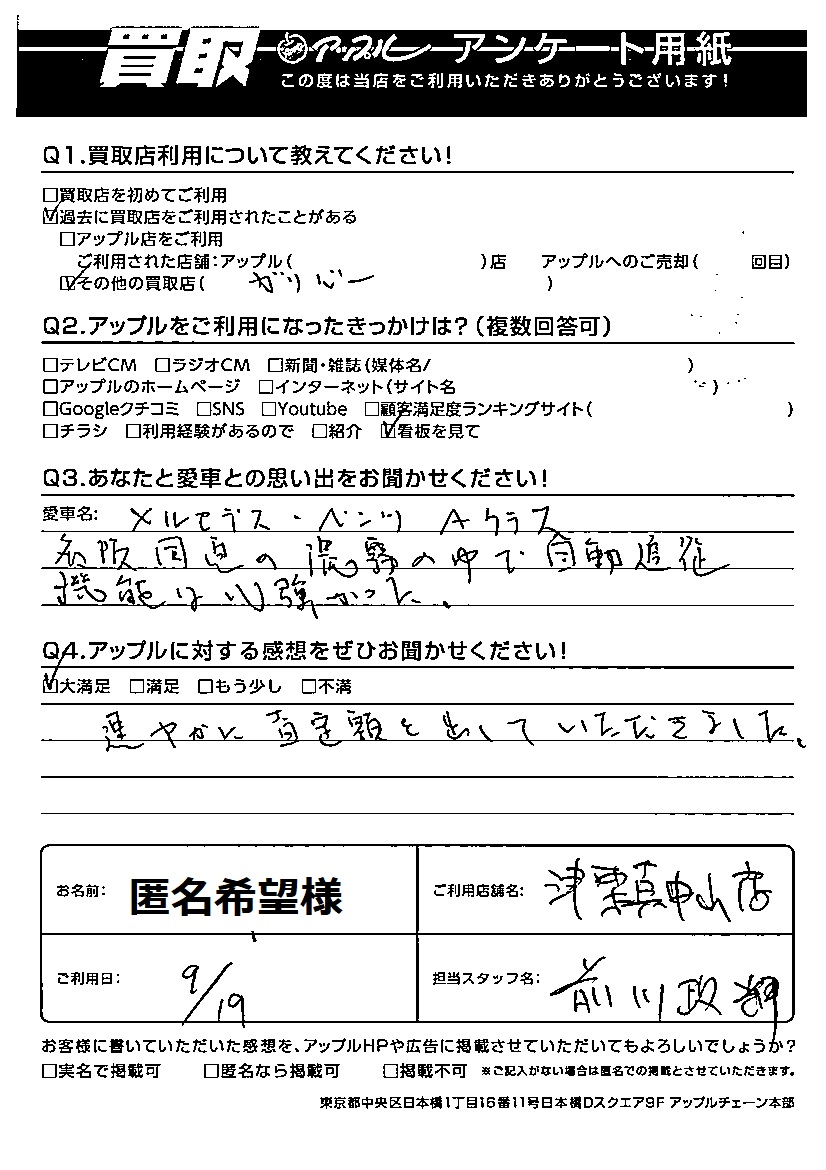 買取 アップル アンケート用紙
この度は当店をご利用いただきありがとうございます!
Q1.買取店利用について教えてください!
□買取店を初めてご利用
☑過去に買取店をご利用されたことがある
□アップル店をご利用
ご利用された店舗:アップル( )店 アップルへのご売却( 回目)
☑その他の買取店( ガリバー )
Q2.アップルをご利用になったきっかけは?(複数回答可)
□テレビCM □ラジオCM □新聞・雑誌(媒体名/ )
□アップルのホームページ □インターネット(サイト名 )
□Googleクチコミ □SNS □Youtube □顧客満足度ランキングサイト( )
□チラシ □利用経験があるので □紹介 ☑看板を見て
Q3.あなたと愛車との思い出をお聞かせください!
愛車名: メルセデス・ベンツ Aクラス
名阪国道の濃霧の中で自動追従
機能は心強かった。
Q4.アップルに対する感想をぜひお聞かせください!
☑大満足 □満足 □もう少し □不満
速やかに査定額を出していただきました。
お名前: 匿名希望様 ご利用店舗名: 津栗真中山店
ご利用日: 9/19 担当スタッフ名: 前川政
お客様に書いていただいた感想を、アップルHPや広告に掲載させていただいてもよろしいでしょうか?
□実名で掲載可 □匿名なら掲載可 □掲載不可 ※ご記入がない場合は匿名での掲載とさせていただきます。
東京都中央区日本橋1丁目16番11号日本橋Dスクエア9F アップルチェーン本部